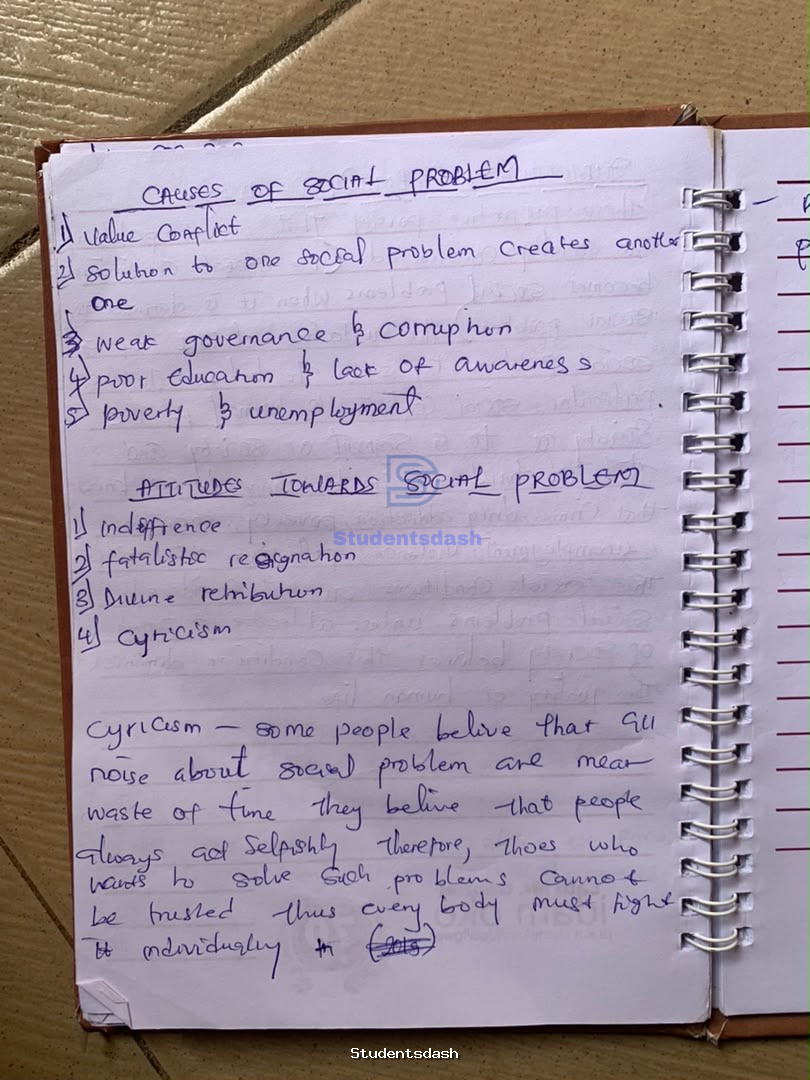 CAUSES OF SOCIAL PROBLEM
1) Value Conflict
2) Solution to one social problem creates another
one
3) weak governance & corruption
4) poor Education & lack of awareness
5) poverty & unemployment
ATTITUDES TOWARDS SOCIAL PROBLEM
1) Indiffrence
Studentsdash
2) fatalistic resignation
3) Divine retribution
4) Cyricism
Cyricism — some people belive that all
noise about social problem are mear
waste of time they belive that people
always act Selfishly therefore, thoes who
wants to solve such problems cannot
be trusted thus every body must fight
it individually
Studentsdash